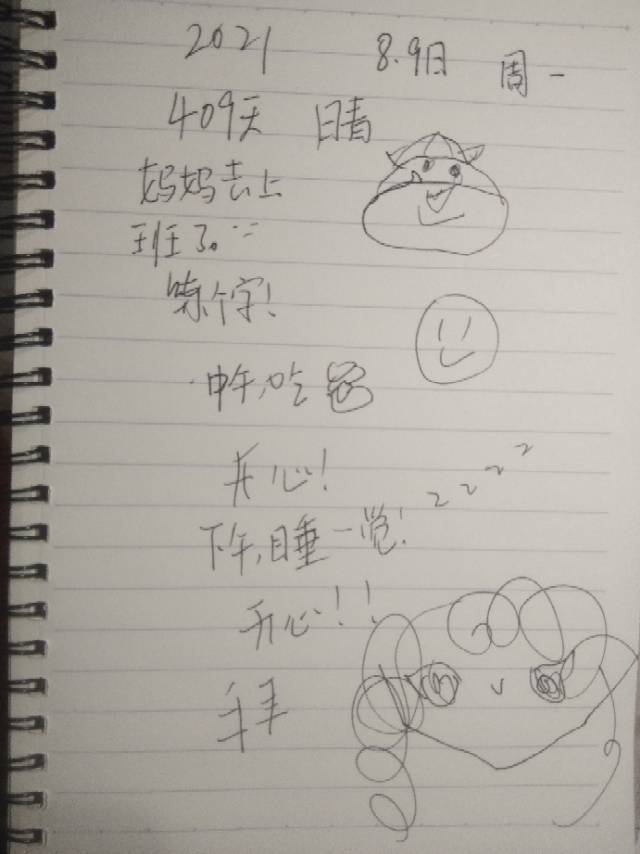 2021 8.9日 周一
409天 晴
妈妈去上
班了。
练个字!
中午,吃
开心!
下午,睡一觉! zzzz
开心!!
拜